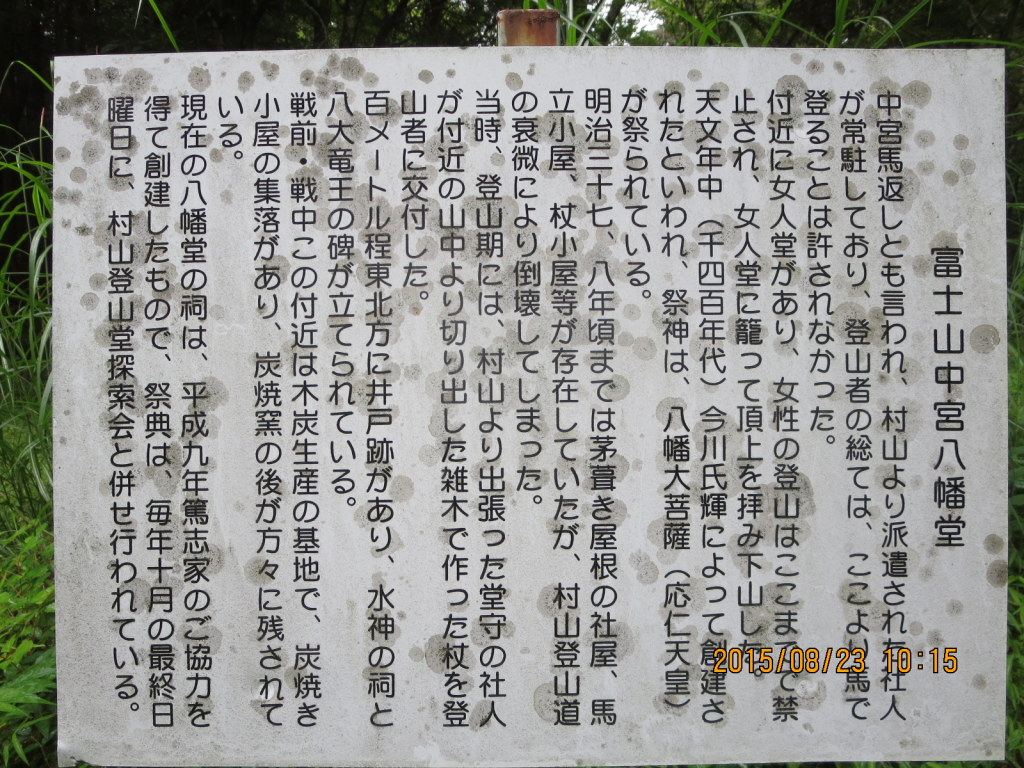 富士山中宮八幡堂
中宮馬返しとも言われ、村山より派遣された社人
が常駐しており、登山者の総ては、ここより馬で
登ることは許されなかった。
付近に女人堂があり、女性の登山はここまでで禁
止され、女人堂に籠って頂上を拝み下山した。
天文年中（千四百年代）今川氏輝によって創建さ
れたといわれ、祭神は、八幡大菩薩（応仁天皇）
が祭られている。
明治三十七、八年頃までは茅葺き屋根の社屋、馬
立小屋、杖小屋等が存在していたが、村山登山道
の衰微により倒壊してしまった。
当時、登山期には、村山より出張った堂守の社人
が付近の山中より切り出した雑木で作った杖を登
山者に交付した。
百メートル程東北方に井戸跡があり、水神の祠と
八大竜王の碑が立てられている。
戦前・戦中この付近は木炭生産の基地で、炭焼き
小屋の集落があり、炭焼窯の後が方々に残されて
いる。
現在の八幡堂の祠は、平成九年篤志家のご協力を
得て創建したもので、祭典は、毎年十月の最終日
曜日に、村山登山堂探索会と併せ行われている。
2015/08/23 10:15